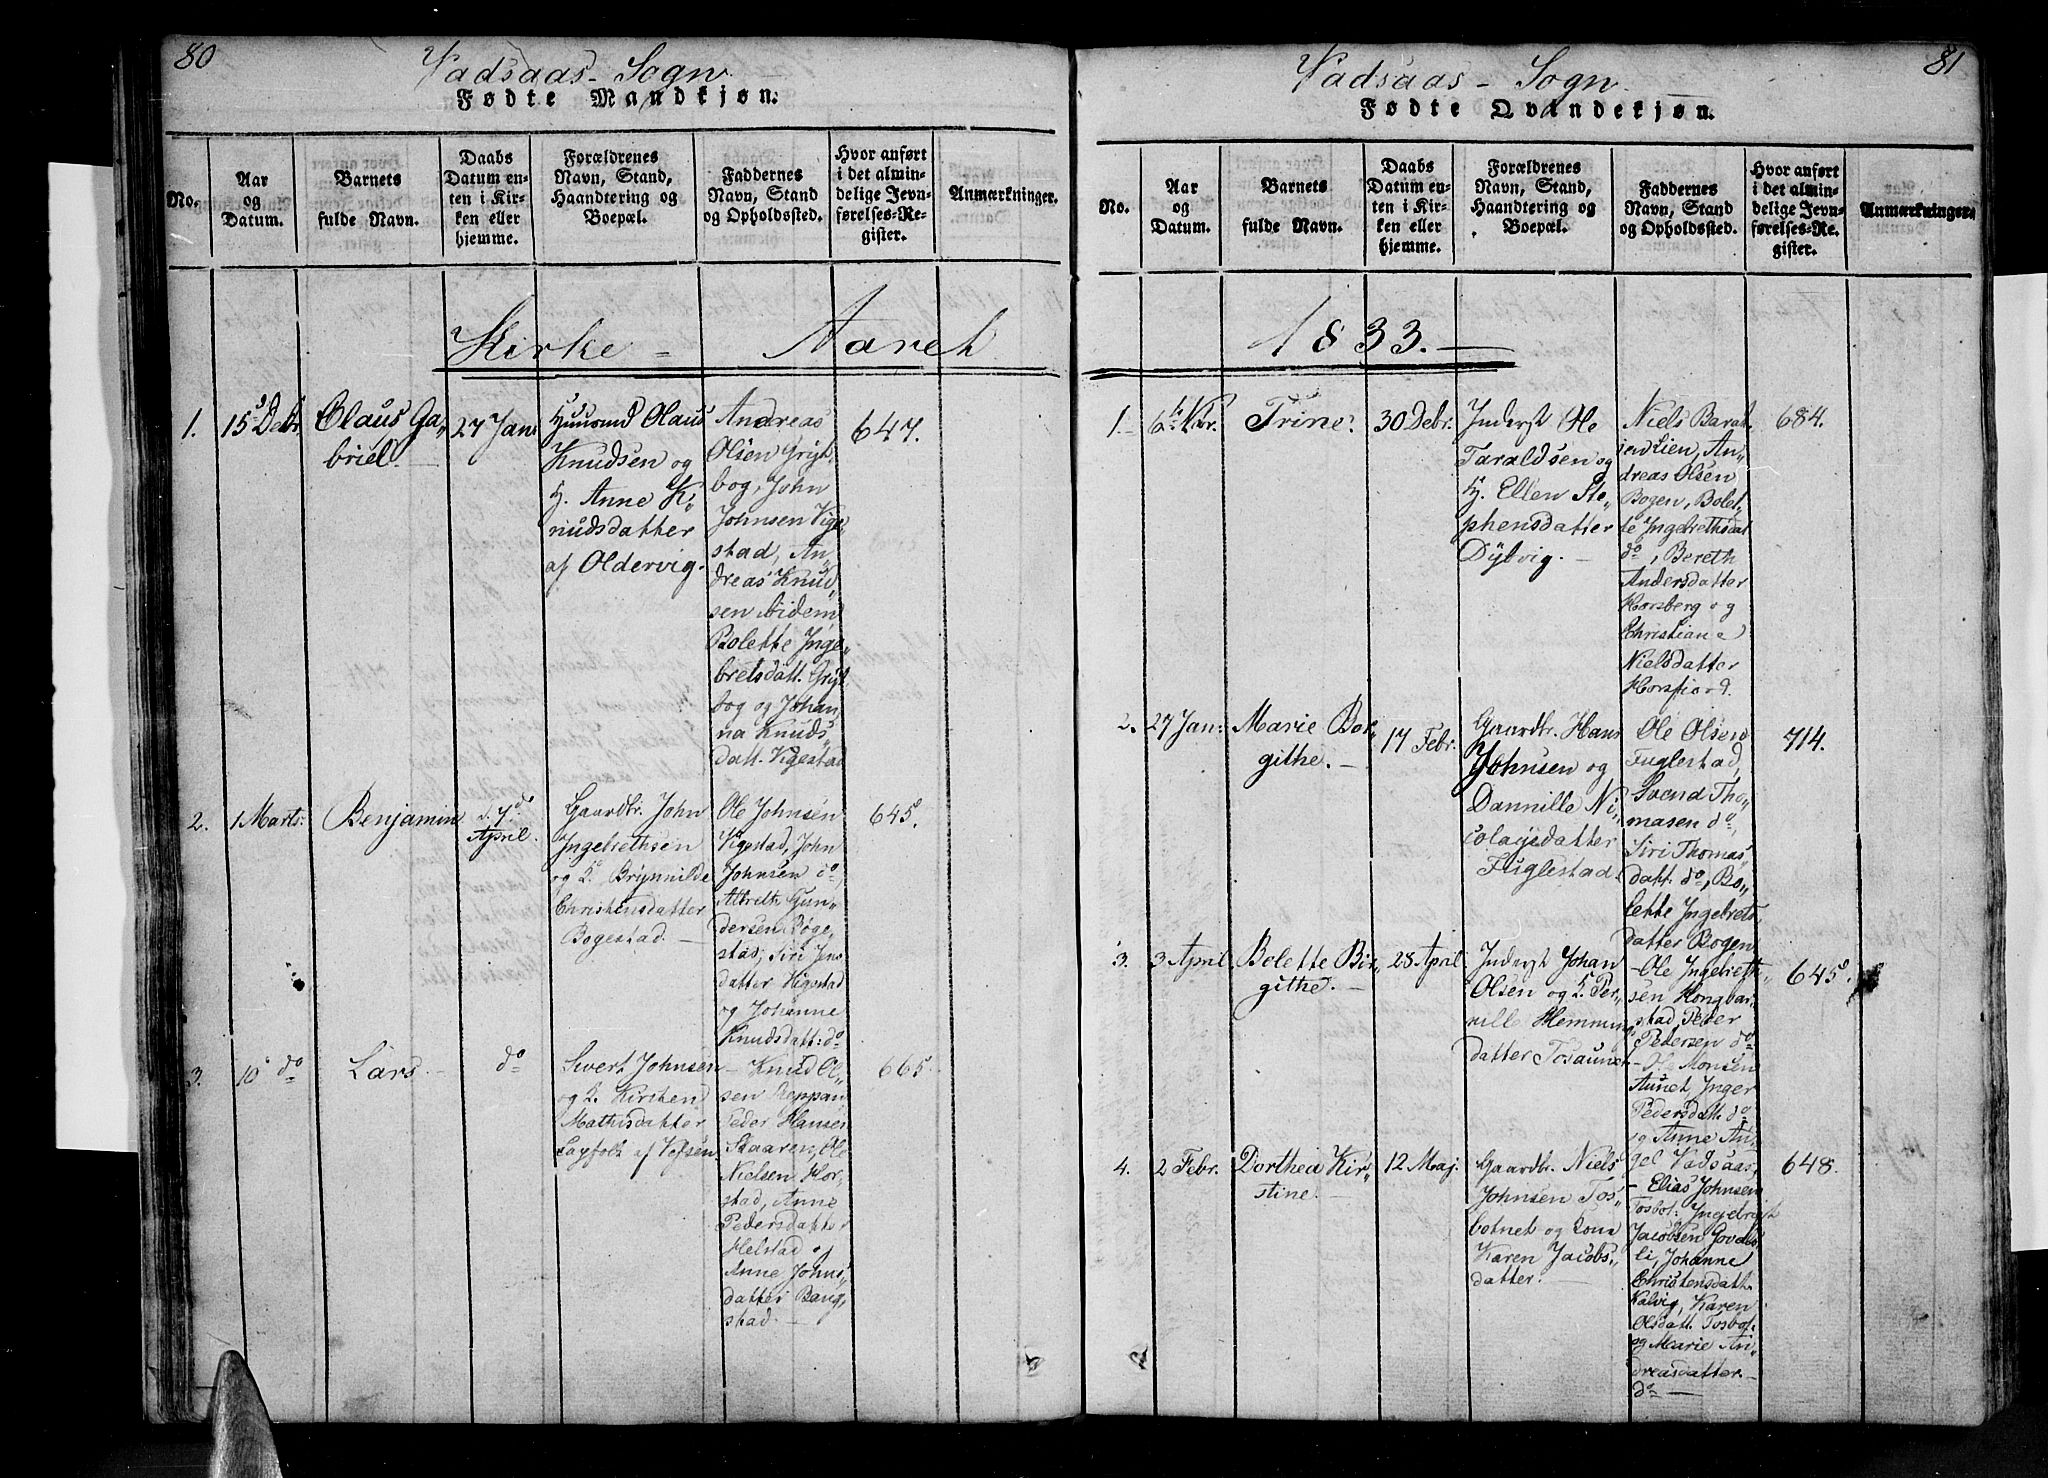 80
Vadsaas - Sogn.
Fødte Mandkjøn.
No.
Aar
og
Datum.
Barnets
fulde Navn.
Daabs
Datum en-
ten i Kir-
ken eller
hjemme.
Forældrenes
Navn, Stand,
Haandtering og
Boepæl.
Faddernes
Navn, Stand
og Opholdssted.
Hvor anført
i det almin-
delige Jevn-
førelses-Re-
gister.
Anmærkninger.
Kirke = Aaret
1.
15 Debr.
Olaus Ga„
briel.
27 Jan:
Huusmd Olaus
Knudsen og
H. Anne K:
nudsdatter
af Oldervig.
Andreas
Olsen
bog, John
Johnsen Vige„
stad, An„
dreas Knud„
sen ibidem
Bolette Inge„
bretsdatt.
bog og Johan„
na Knuds„
datt. Vigestad
647.
2.
1 Marts.
Benjamin
d. 7de
April.
Gaardbr. John
Ingebrethsen
og K. Brynnilde
Christensdatter
Bogestad. —
Ole Johnsen
Vigestad, John
Johnsen do,
Albreth Gun„
dersen Bøge„
stad, Siri Jens„
datter Vigestad
og Johanne
Knudsdatt: do
645.
3.
10 do
Lars. —
do
Sivert Johnsen
og K. Kirsten
Mathisdatter
Lapfolk af Vefsen.
— Knud Ol„
sen Reppan
Peder Hansen
Staaren, Ole
Nielsen Hor„
stad, Anne
Pedersdatter
Helstad og
Anne Johns„
datter Bang„
stad. —
665.
81
Vadsaas - Sogn.
Fødte Qvindekjøn.
No.
Aar
og
Datum.
Barnets
fulde Navn.
Daabs
Datum en-
ten i Kir-
ken eller
hjemme.
Forældrenes
Navn, Stand,
Haandtering og
Boepæl.
Faddernes
Navn, Stand
og Opholdssted.
Hvor anført
i det almin-
delige Jevn-
førelses-Re-
gister.
Anmærkninger.
1833. —
1.
Trine.
30 Debr.
Inderst Ole
Taraldsen og
H. Ellen Ste„
phensdatter
Dybvig. —
Niels
Lien, An„
dreas Olsen
Bogen, Bolet„
te Ingebrethsdat
do, Bereth
Andersdatter
Horsberg og
Christiane
Nielsdatter
Horsfiord.
684.
2.
27 Jan:
Marie Bor„
githe. —
17 Febr.
Gaardbr. Hans
Johnsen og
Dannille Ni„
colaysdatter
Fuglestad.
Ole Olsen
Fuglestad,
Svend Tho„
masen do,
Siri Thomas„
datt. do, Bo„
lette Ingebrets„
datter Bogen
714.
3.
3 April
Bolette Bir„
githe. —
28 April.
Inderst Johan
Olsen og K. Per„
nill Hemmings„
datter Tosaunet
— Ole Ingebreth„
sen Hongbar„
stad, Peder
Pedersen do
— Monsen
Aunet, Inger
Pedersdatt. do
og Anne An„
gel Vadsaas
645.
4.
2 Febr.
Dorthea Kir„
stine. —
12 Maj.
Gaardbr. Niels
Johnsen Tos„
botnet og Kone
Karen Jacobs„
datter. —
— Elias Johnsen
Tosbot: Ingebrigt
Jacobsen
li, Johanne
Christensdatt.
Kalvig, Karen
Olsdatt. Tosbot.
og Marie An„
dreasdatter. —
do —
648.